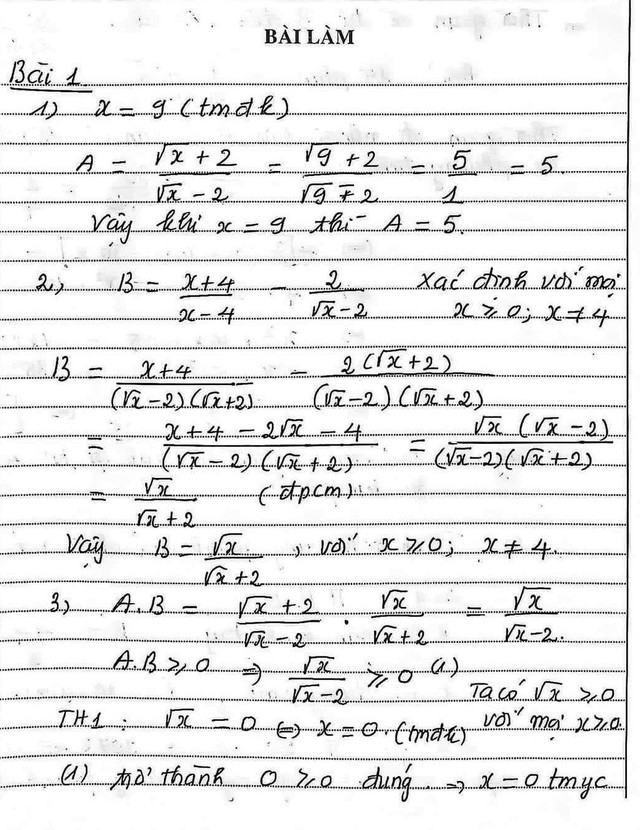 BÀI LÀM
Bài 1
1) x = 9 (tmđk)
A = (√x + 2)/(√x - 2) = (√9 + 2)/(√9 - 2) = 5/1 = 5.
Vậy khi x = 9 thì A = 5.
2, B = (x+4)/(x-4) - 2/(√x - 2) xác định với mọi
x ≥ 0; x ≠ 4
B = (x+4)/((√x-2)(√x+2)) - 2(√x+2)/((√x-2)(√x+2))
= (x+4 - 2√x - 4)/((√x-2)(√x+2)) = √x(√x-2)/((√x-2)(√x+2))
= √x/(√x+2) (đpcm)
Vậy B = √x/(√x+2), với x ≥ 0; x ≠ 4.
3, A.B = (√x+2)/(√x-2) . √x/(√x+2) = √x/(√x-2).
A.B ≥ 0 ⇒ √x/(√x-2) ≥ 0 (1)
Ta có √x ≥ 0
với mọi x ≥ 0.
TH1: √x = 0 ⇔ x = 0. (tmđk)
(1) trở thành 0 ≥ 0 đúng. ⇒ x = 0 tmyc